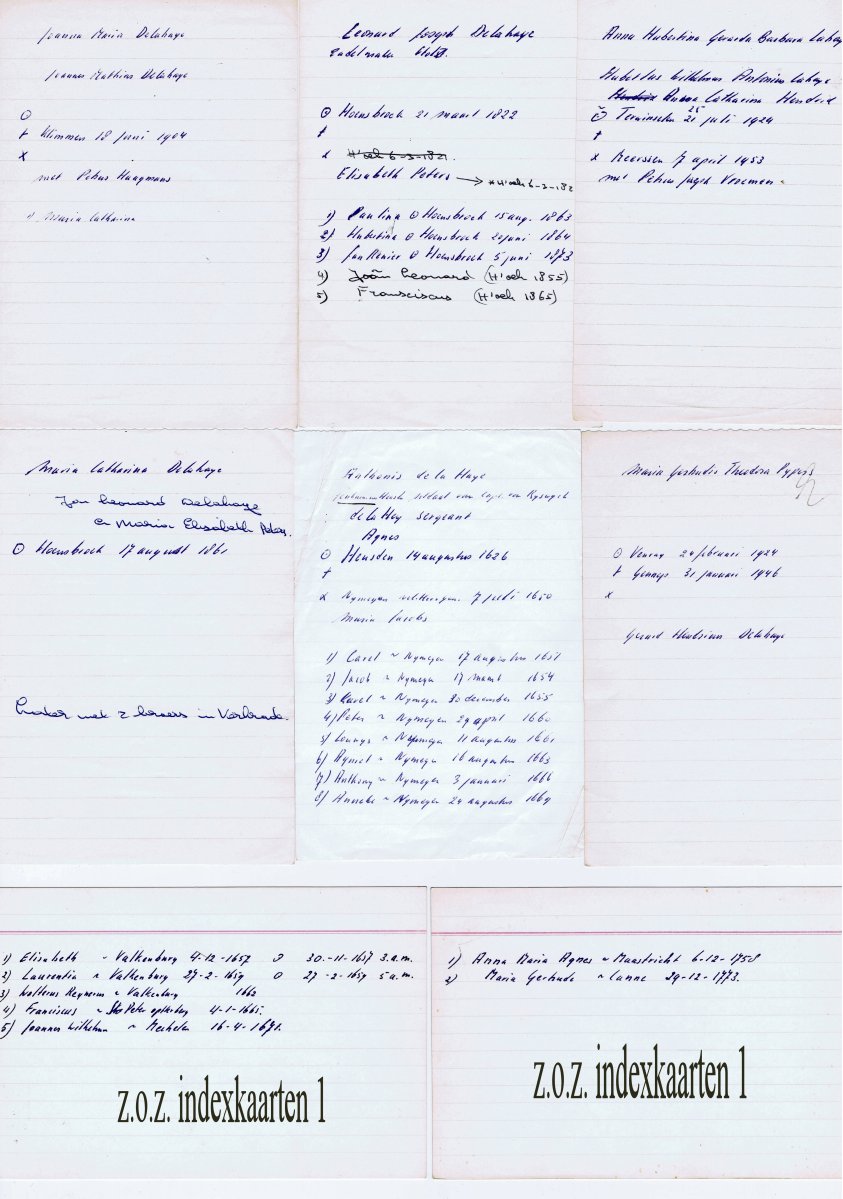 Joanna Maria Delahaye
Joannes Mathias Delahaye
† Klimmen 18 juni 1904
x
met Petrus Haagmans
1) Maria Catharina
Leonard Joseph Delahaye
⊙ Hoensbroek 21 maart 1822
†
x H'oek 6-3-182
Elisabeth Peters → * H'oek 6-3-182
1) Paulina ⊙ Hoensbroek 15 aug. 1863
2) Hubertina ⊙ Hoensbroek 20 juni 1864
3) Jan Renier ⊙ Hoensbroek 5 juni 1873
4) Joān Leonard (H'oek 1855)
5) Franciscus (H'oek 1865)
Anna Hubertina Gerarda Barbara Lahay
Hubertus Wilhelmus Antonius Lahaye
Hendrix Anna Catharina Hendrix
⊙ Terwinselen 25 juli 1924
†
x 7 april 1953
met Petrus Joseph Vroemen
Maria Catharina Delahaye
Jan Leonard Delahaye
en Maria Elisabeth Peters.
⊙ Hoensbroek 17 augustus 1861
Anthonis de la Haye
soldaat van Capt. van
de la Hoy Sergeant
Agnes
⊙ Heusden 14 augustus 1626
†
x Nymegen 7 juli 1650
Maria Jacobs
1) Carel ~ Nymegen 17 augustus 1651
2) Jacob ~ Nymegen 17 maart 1654
3) Carel ~ Nymegen 30 december 1655
4) Peter ~ Nymegen 29 april 1660
5) Lourys ~ Nymegen 11 augustus 1661
6) Rymet ~ Nymegen 16 augustus 1663
7) Anthony ~ Nymegen 3 januari 1666
8) ~ Nymegen 24 augustus 1669
Maria Gertrudis Theodora Pypers
⊙ Venray 24 februari 1924
† Gennep 31 januari 1946
x
Gerard Delahaye
1) Elisabeth ~ Valkenburg 4-12-1657 ⊙ 30-11-1657 3 a.m.
2) Laurentia ~ Valkenburg 27-2-1659 ⊙ 27-2-1659 5 a.m.
3) Walterus Reynerus ~ Valkenburg 1662
4) Franciscus ~ St Peter 4-1-1665.
5) Joannes Wilhelmus ~ Mechelen 16-4-1671.
1) Anna Maria Agnes ~ Maastricht 6-12-1758
2) Maria Gertrude ~ Canne 29-12-1773.
z.o.z. indexkaarten 1
z.o.z. indexkaarten 1